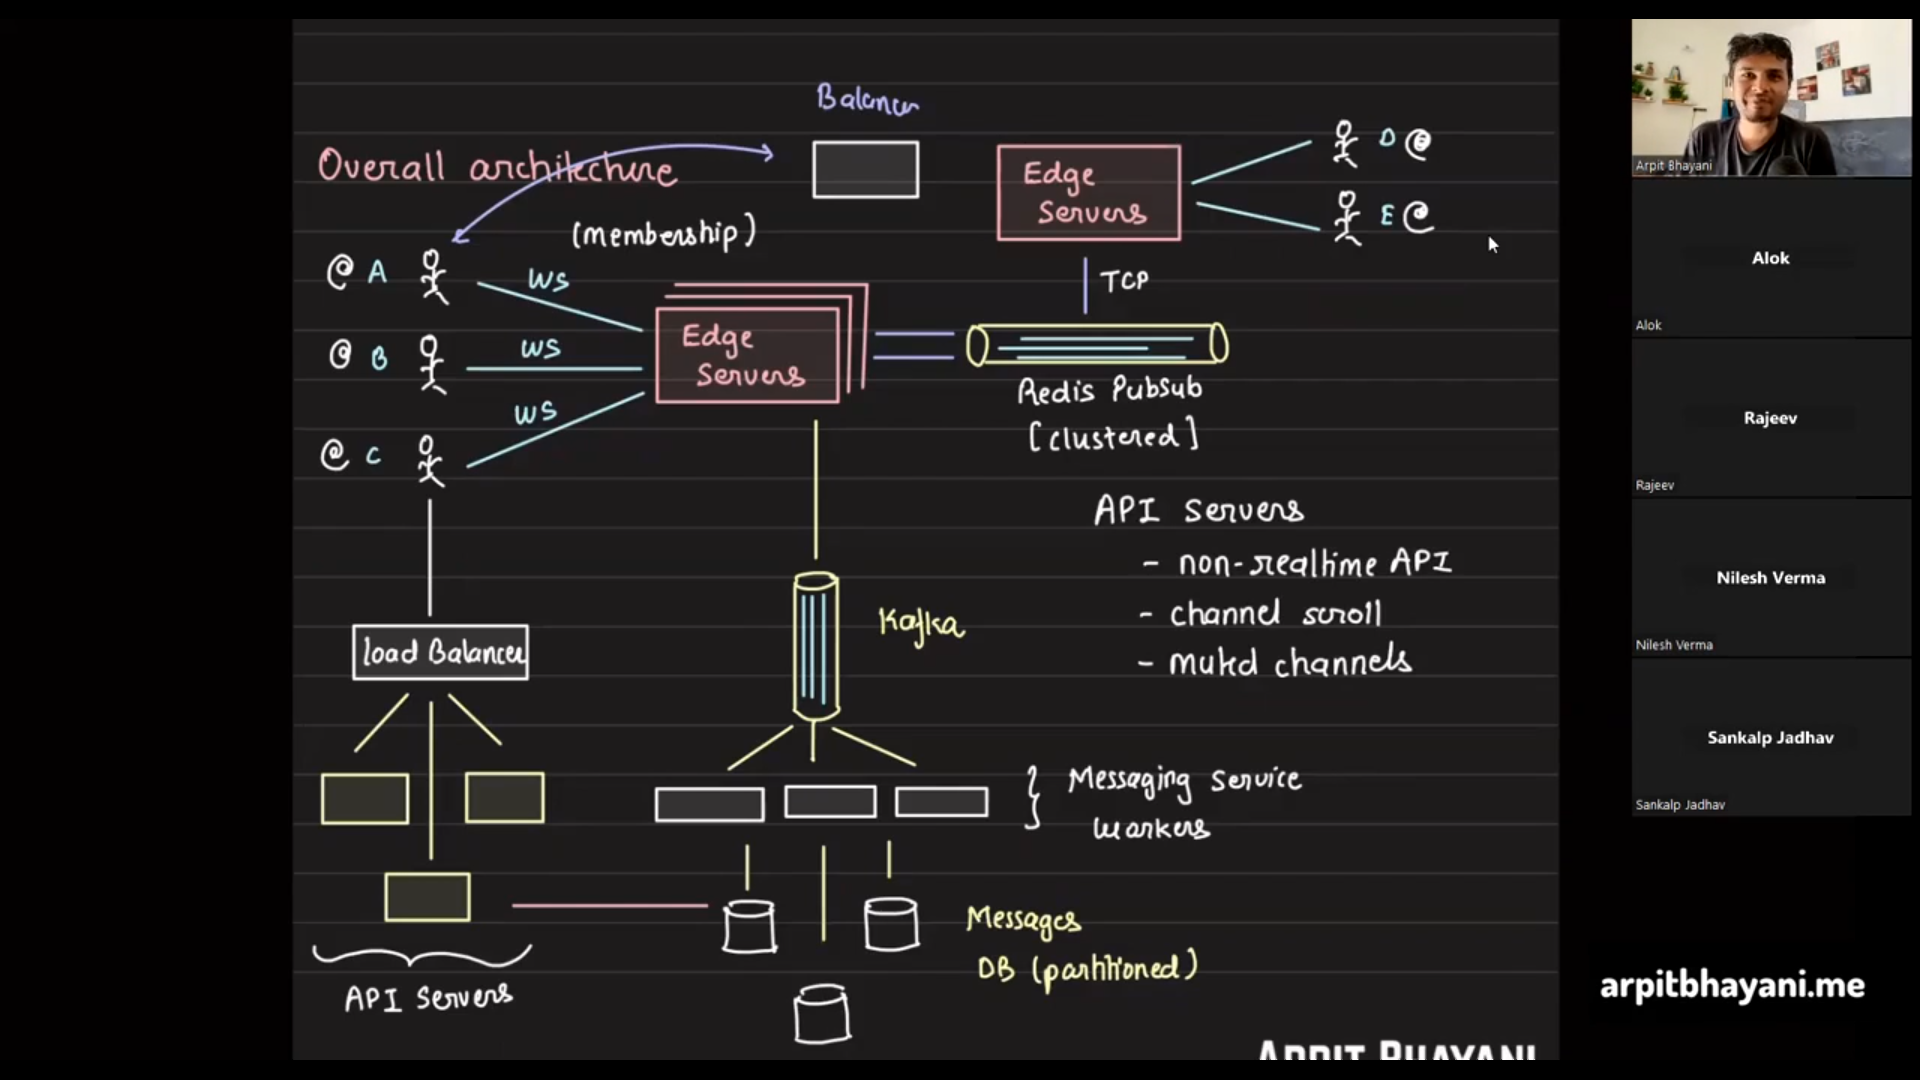 Balancer
Overall architecture
(membership)
Edge
Servers
D
E
TCP
A
B
C
WS
WS
WS
Edge
Servers
Redis Pubsub
[clustered]
API Servers
- non-realtime API
- channel scroll
- muted channels
Kafka
load Balancer
Messaging Service
Workers
Messages
DB (partitioned)
API Servers
ARPIT BHAYANI
Arpit Bhayani
Alok
Alok
Rajeev
Rajeev
Nilesh Verma
Nilesh Verma
Sankalp Jadhav
Sankalp Jadhav
arpitbhayani.me